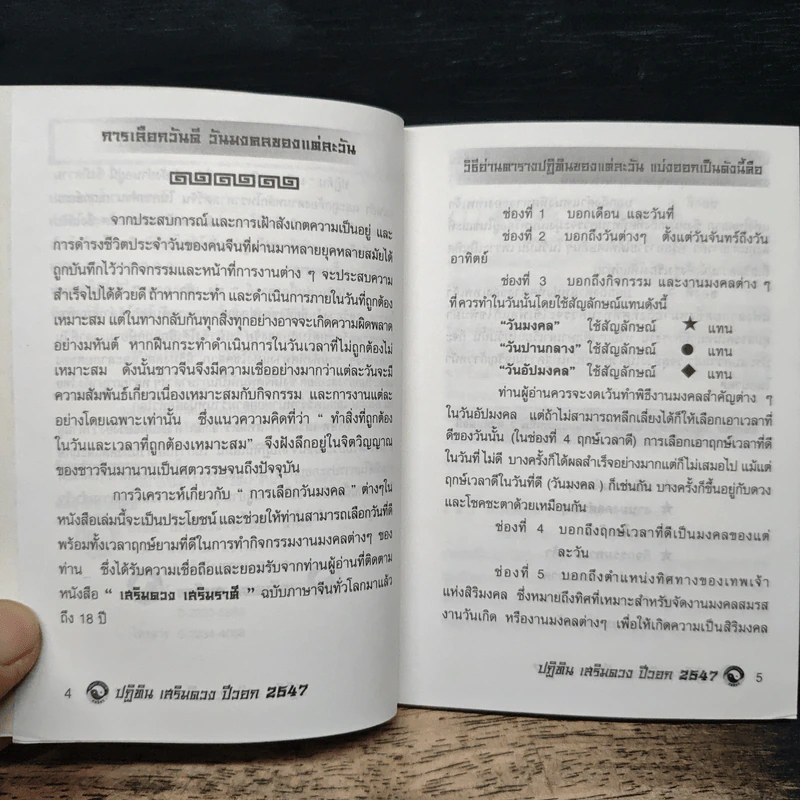 การเลือกวันดี วันมงคลของแต่ละวัน
จากประสบการณ์ และการเฝ้าสังเกตความเป็นอยู่ และ
การดำรงชีวิตประจำวันของคนจีนที่ผ่านมาหลายยุคหลายสมัยได้
ถูกบันทึกไว้ว่ากิจกรรมและหน้าที่การงานต่าง ๆ จะประสบความ
สำเร็จไปได้ด้วยดี ถ้าหากกระทำ และดำเนินการภายในวันที่ถูกต้อง
เหมาะสม แต่ในทางกลับกันทุกสิ่งทุกอย่างอาจจะเกิดความผิดพลาด
อย่างมหันต์ หากฝืนกระทำดำเนินการในวันเวลาที่ไม่ถูกต้องไม่
เหมาะสม ดังนั้นชาวจีนจึงมีความเชื่ออย่างมากว่าแต่ละวันจะมี
ความสัมพันธ์เกี่ยวเนื่องเหมาะสมกับกิจกรรม และการงานแต่ละ
อย่างโดยเฉพาะเท่านั้น ซึ่งแนวความคิดที่ว่า “ ทำสิ่งที่ถูกต้อง
ในวันและเวลาที่ถูกต้องเหมาะสม” จึงฝังลึกอยู่ในจิตวิญญาณ
ของชาวจีนมานานเป็นศตวรรษจนถึงปัจจุบัน
การวิเคราะห์เกี่ยวกับ “ การเลือกวันมงคล ” ต่างๆใน
หนังสือเล่มนี้จะเป็นประโยชน์ และช่วยให้ท่านสามารถเลือกวันที่ดี
พร้อมทั้งเวลาฤกษ์ยามที่ดีในการทำกิจกรรมงานมงคลต่างๆ ของ
ท่าน ซึ่งได้รับความเชื่อถือและยอมรับจากท่านผู้อ่านที่ติดตาม
หนังสือ “ เสริมดวง เสริมราศี ” ฉบับภาษาจีนทั่วโลกมาแล้ว
ถึง 18 ปี
4 ปฏิทิน เสริมดวง ปีวอก 2547
วิธีอ่านตารางปฏิทินของแต่ละวัน แบ่งออกเป็นดังนี้คือ
ช่องที่ 1 บอกเดือน และวันที่
ช่องที่ 2 บอกถึงวันต่างๆ ตั้งแต่วันจันทร์ถึงวัน
อาทิตย์
ช่องที่ 3 บอกถึงกิจกรรม และงานมงคลต่าง ๆ
ที่ควรทำในวันนั้นโดยใช้สัญลักษณ์แทนดังนี้
“วันมงคล” ใช้สัญลักษณ์ ★ แทน
“วันปานกลาง” ใช้สัญลักษณ์ ● แทน
“วันอัปมงคล” ใช้สัญลักษณ์ ◆ แทน
ท่านผู้อ่านควรจะงดเว้นทำพิธีงานมงคลสำคัญต่าง ๆ
ในวันอัปมงคล แต่ถ้าไม่สามารถหลีกเลี่ยงได้ก็ให้เลือกเอาเวลาที่
ดีของวันนั้น (ในช่องที่ 4 ฤกษ์เวลาดี) การเลือกเอาฤกษ์เวลาที่ดี
ในวันที่ไม่ดี บางครั้งก็ได้ผลสำเร็จอย่างมากแต่ก็ไม่เสมอไป แม้แต่
ฤกษ์เวลาดีในวันที่ดี (วันมงคล ) ก็เช่นกัน บางครั้งก็ขึ้นอยู่กับดวง
และโชคชะตาด้วยเหมือนกัน
ช่องที่ 4 บอกถึงฤกษ์เวลาที่ดีเป็นมงคลของแต่
ละวัน
ช่องที่ 5 บอกถึงตำแหน่งทิศทางของเทพเจ้า
แห่งสิริมงคล ซึ่งหมายถึงทิศที่เหมาะสำหรับจัดงานมงคลสมรส
งานวันเกิด หรืองานมงคลต่างๆ เพื่อให้เกิดความเป็นสิริมงคล
ปฏิทิน เสริมดวง ปีวอก 2547 5